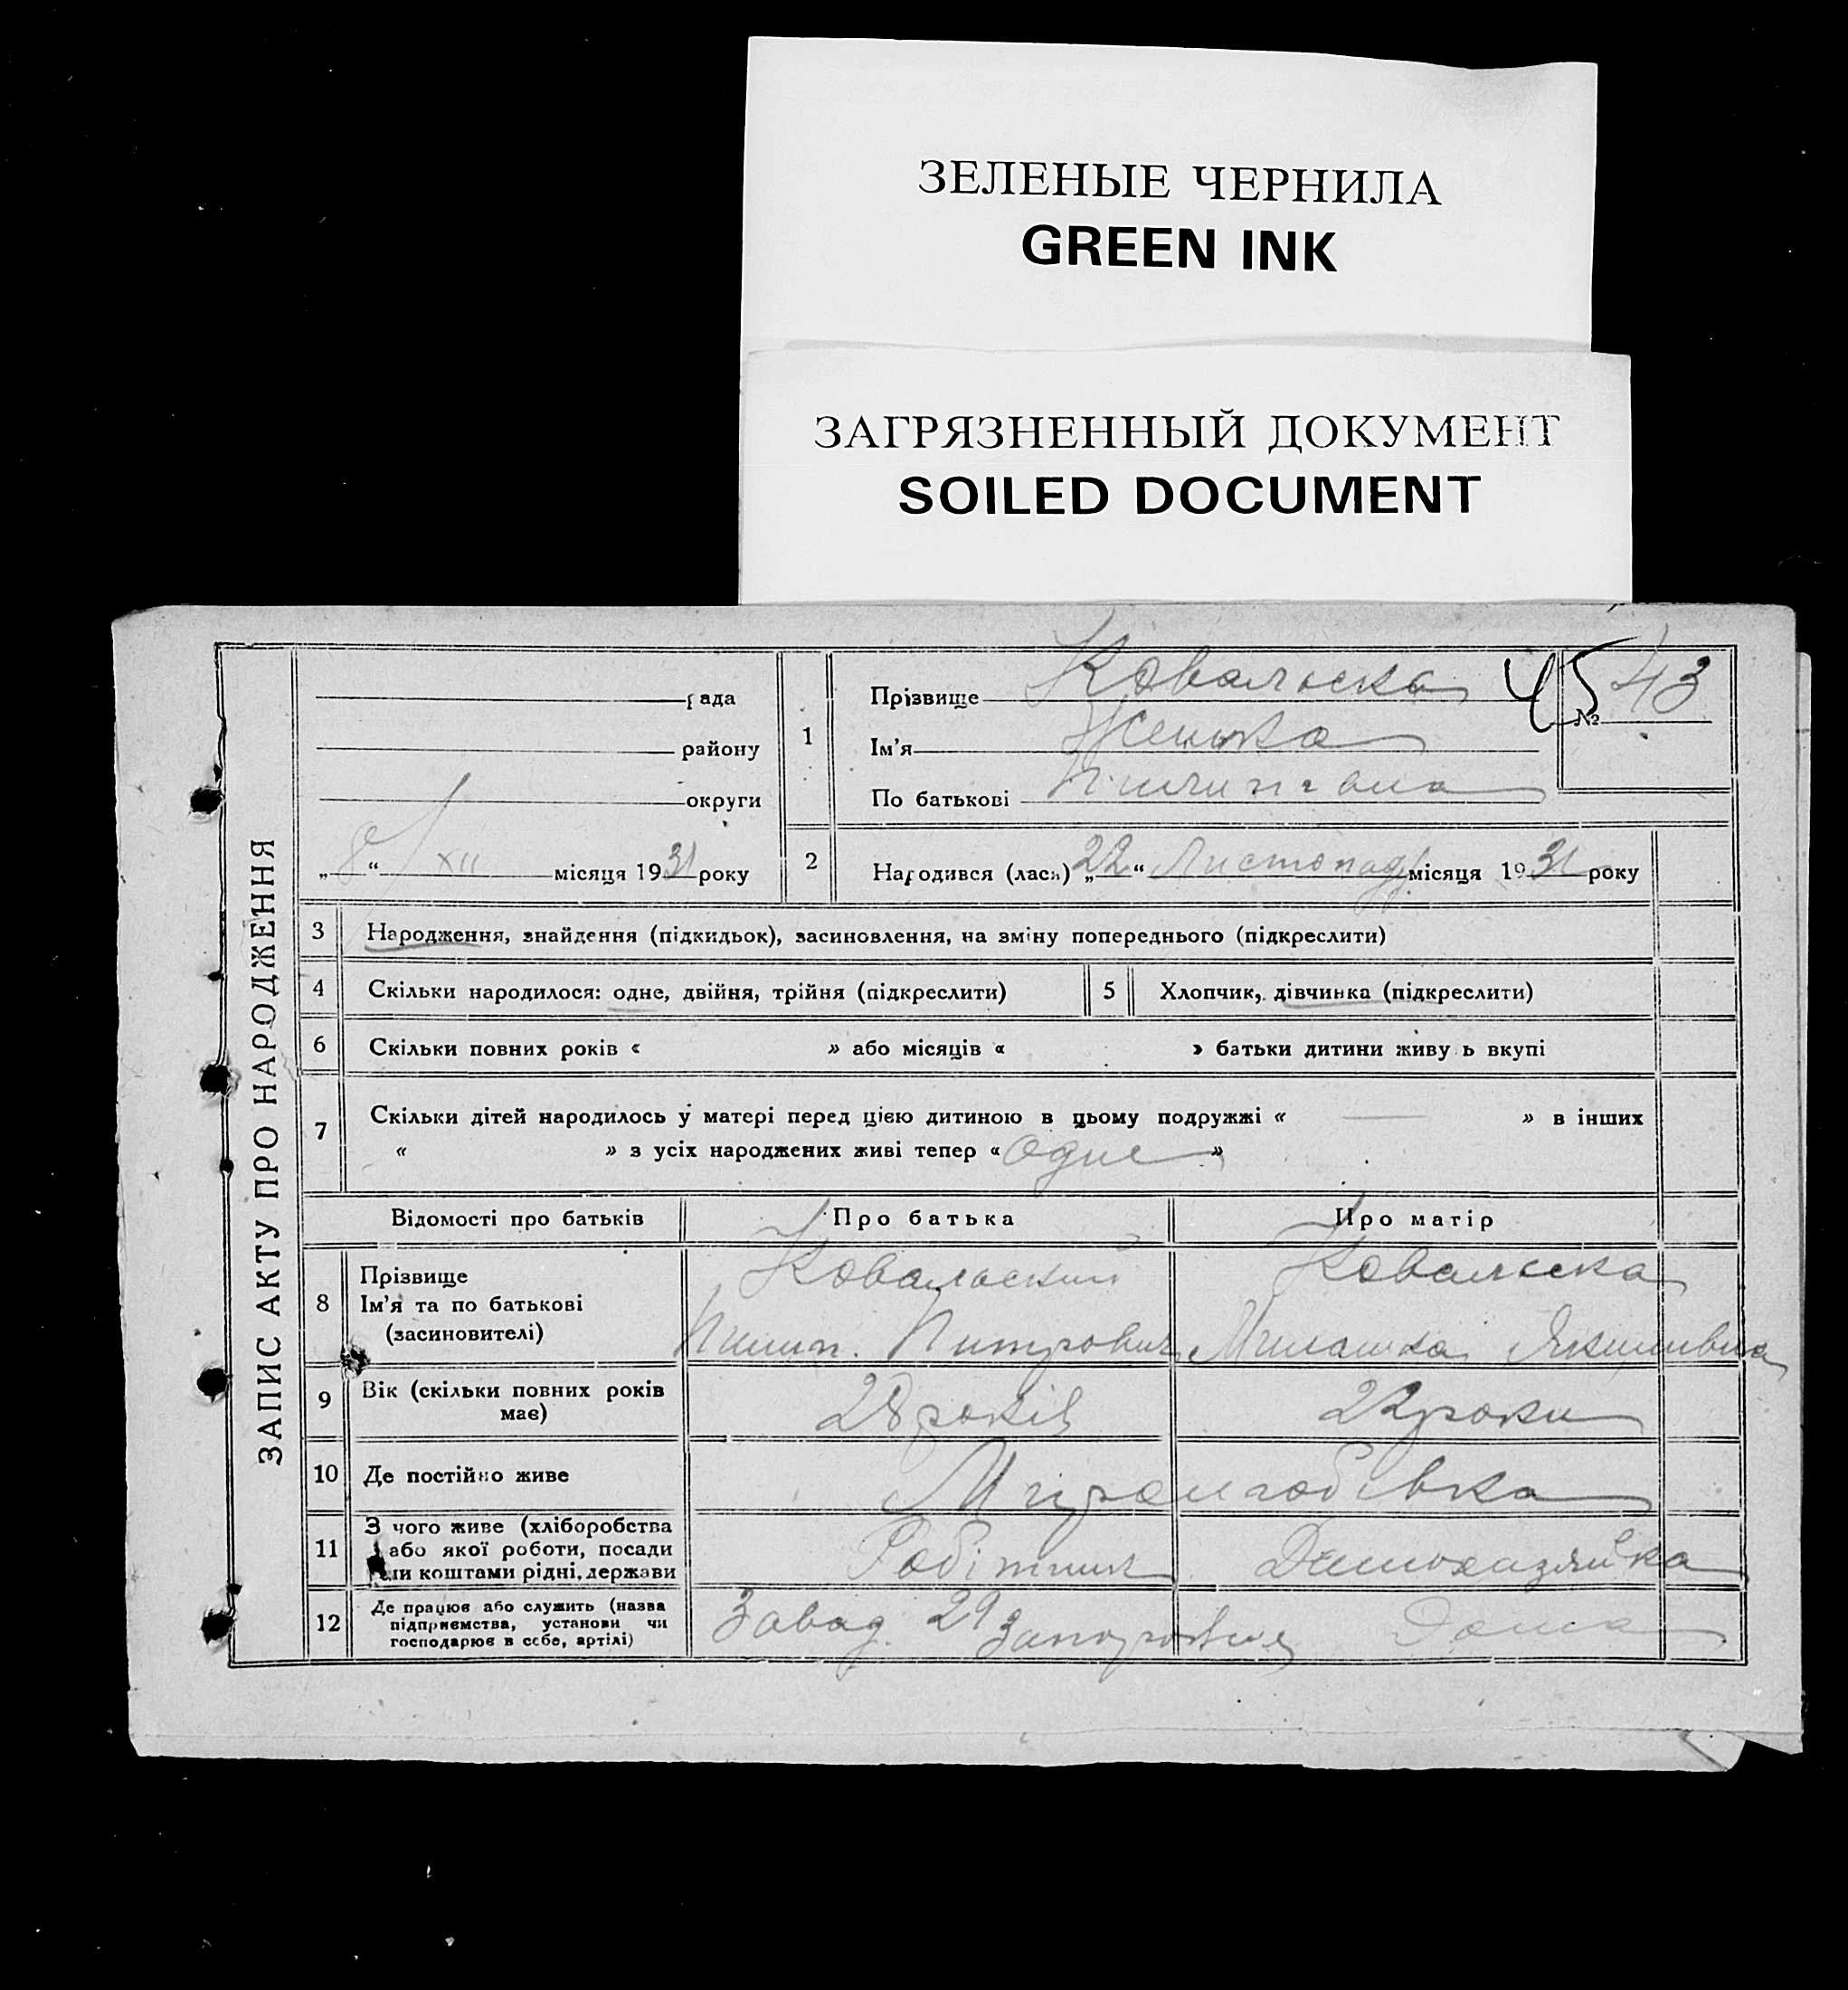 ЗЕЛЕНЫЕ ЧЕРНИЛА
GREEN INK
ЗАГРЯЗНЕННЫЙ ДОКУМЕНТ
SOILED DOCUMENT
ЗАПИС АКТУ ПРО НАРОДЖЕННЯ
рада
району
округи
„8“ XII місяця 1931 року
1
Прізвище Ковальска
Ім'я Женька
По батькові
45
№ 43
2
Народився (лася) „22“ Листопад місяця 1931 року
3 Народження, знайдення (підкидьок), засиновлення, на зміну попереднього (підкреслити)
4 Скільки народилося: одне, двійня, трійня (підкреслити)
5 Хлопчик, дівчинка (підкреслити)
6 Скільки повних років « » або місяців « » батьки дитини живу ь вкупі
7 Скільки дітей народилось у матері перед цією дитиною в цьому подружжі « — » в інших
« » з усіх народжених живі тепер «одне»
Відомості про батьків Про батька Про матір
8 Прізвище Ковальский Ковальска
Ім'я та по батькові
(засиновителі) Пилип. Питрович Якимивна
9 Вік (скільки повних років має) 28 років 22 роки
10 Де постійно живе
11 З чого живе (хліборобства або якої роботи, посади чи коштами рідні, держави Робітник Домохазяйка
12 Де працює або служить (назва підприємства, установи чи господарює в себе, артілі) Завод 29 Запоріжжя Дома